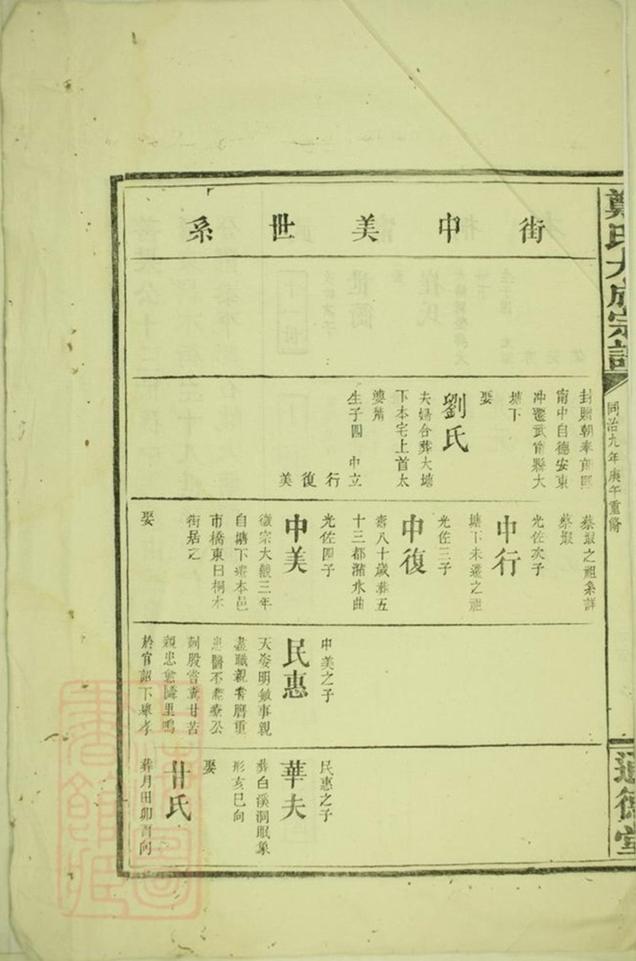 鄭氏大成宗譜
同治九年庚午重脩
通德堂
街中美世系
封贈朝奉郎熙
甯中自德安東
冲遷武甯縣大
塘下
娶
劉氏
夫婦合葬大塘
下本宅上首太
婆
生子四 中立
行復美
蔡塅之祖系詳
蔡塅
中行
光佐次子
塘下未遷之祖
中復
光佐三子
壽八十歲葬五
十三都潴水曲
中美
光佐四子
徽宗大觀三年
自塘下遷本邑
市橋東曰桐木
街居之
娶
民惠
中美之子
天姿明敏事親
盡職親耆曆重
患醫不奏療公
刲股嘗糞甘苦
親患愈隣里鳴
於官詔下舉孝
華夫
民惠之子
葬白溪洞眠象
形亥巳向
娶
甘氏
葬月田卯酉向